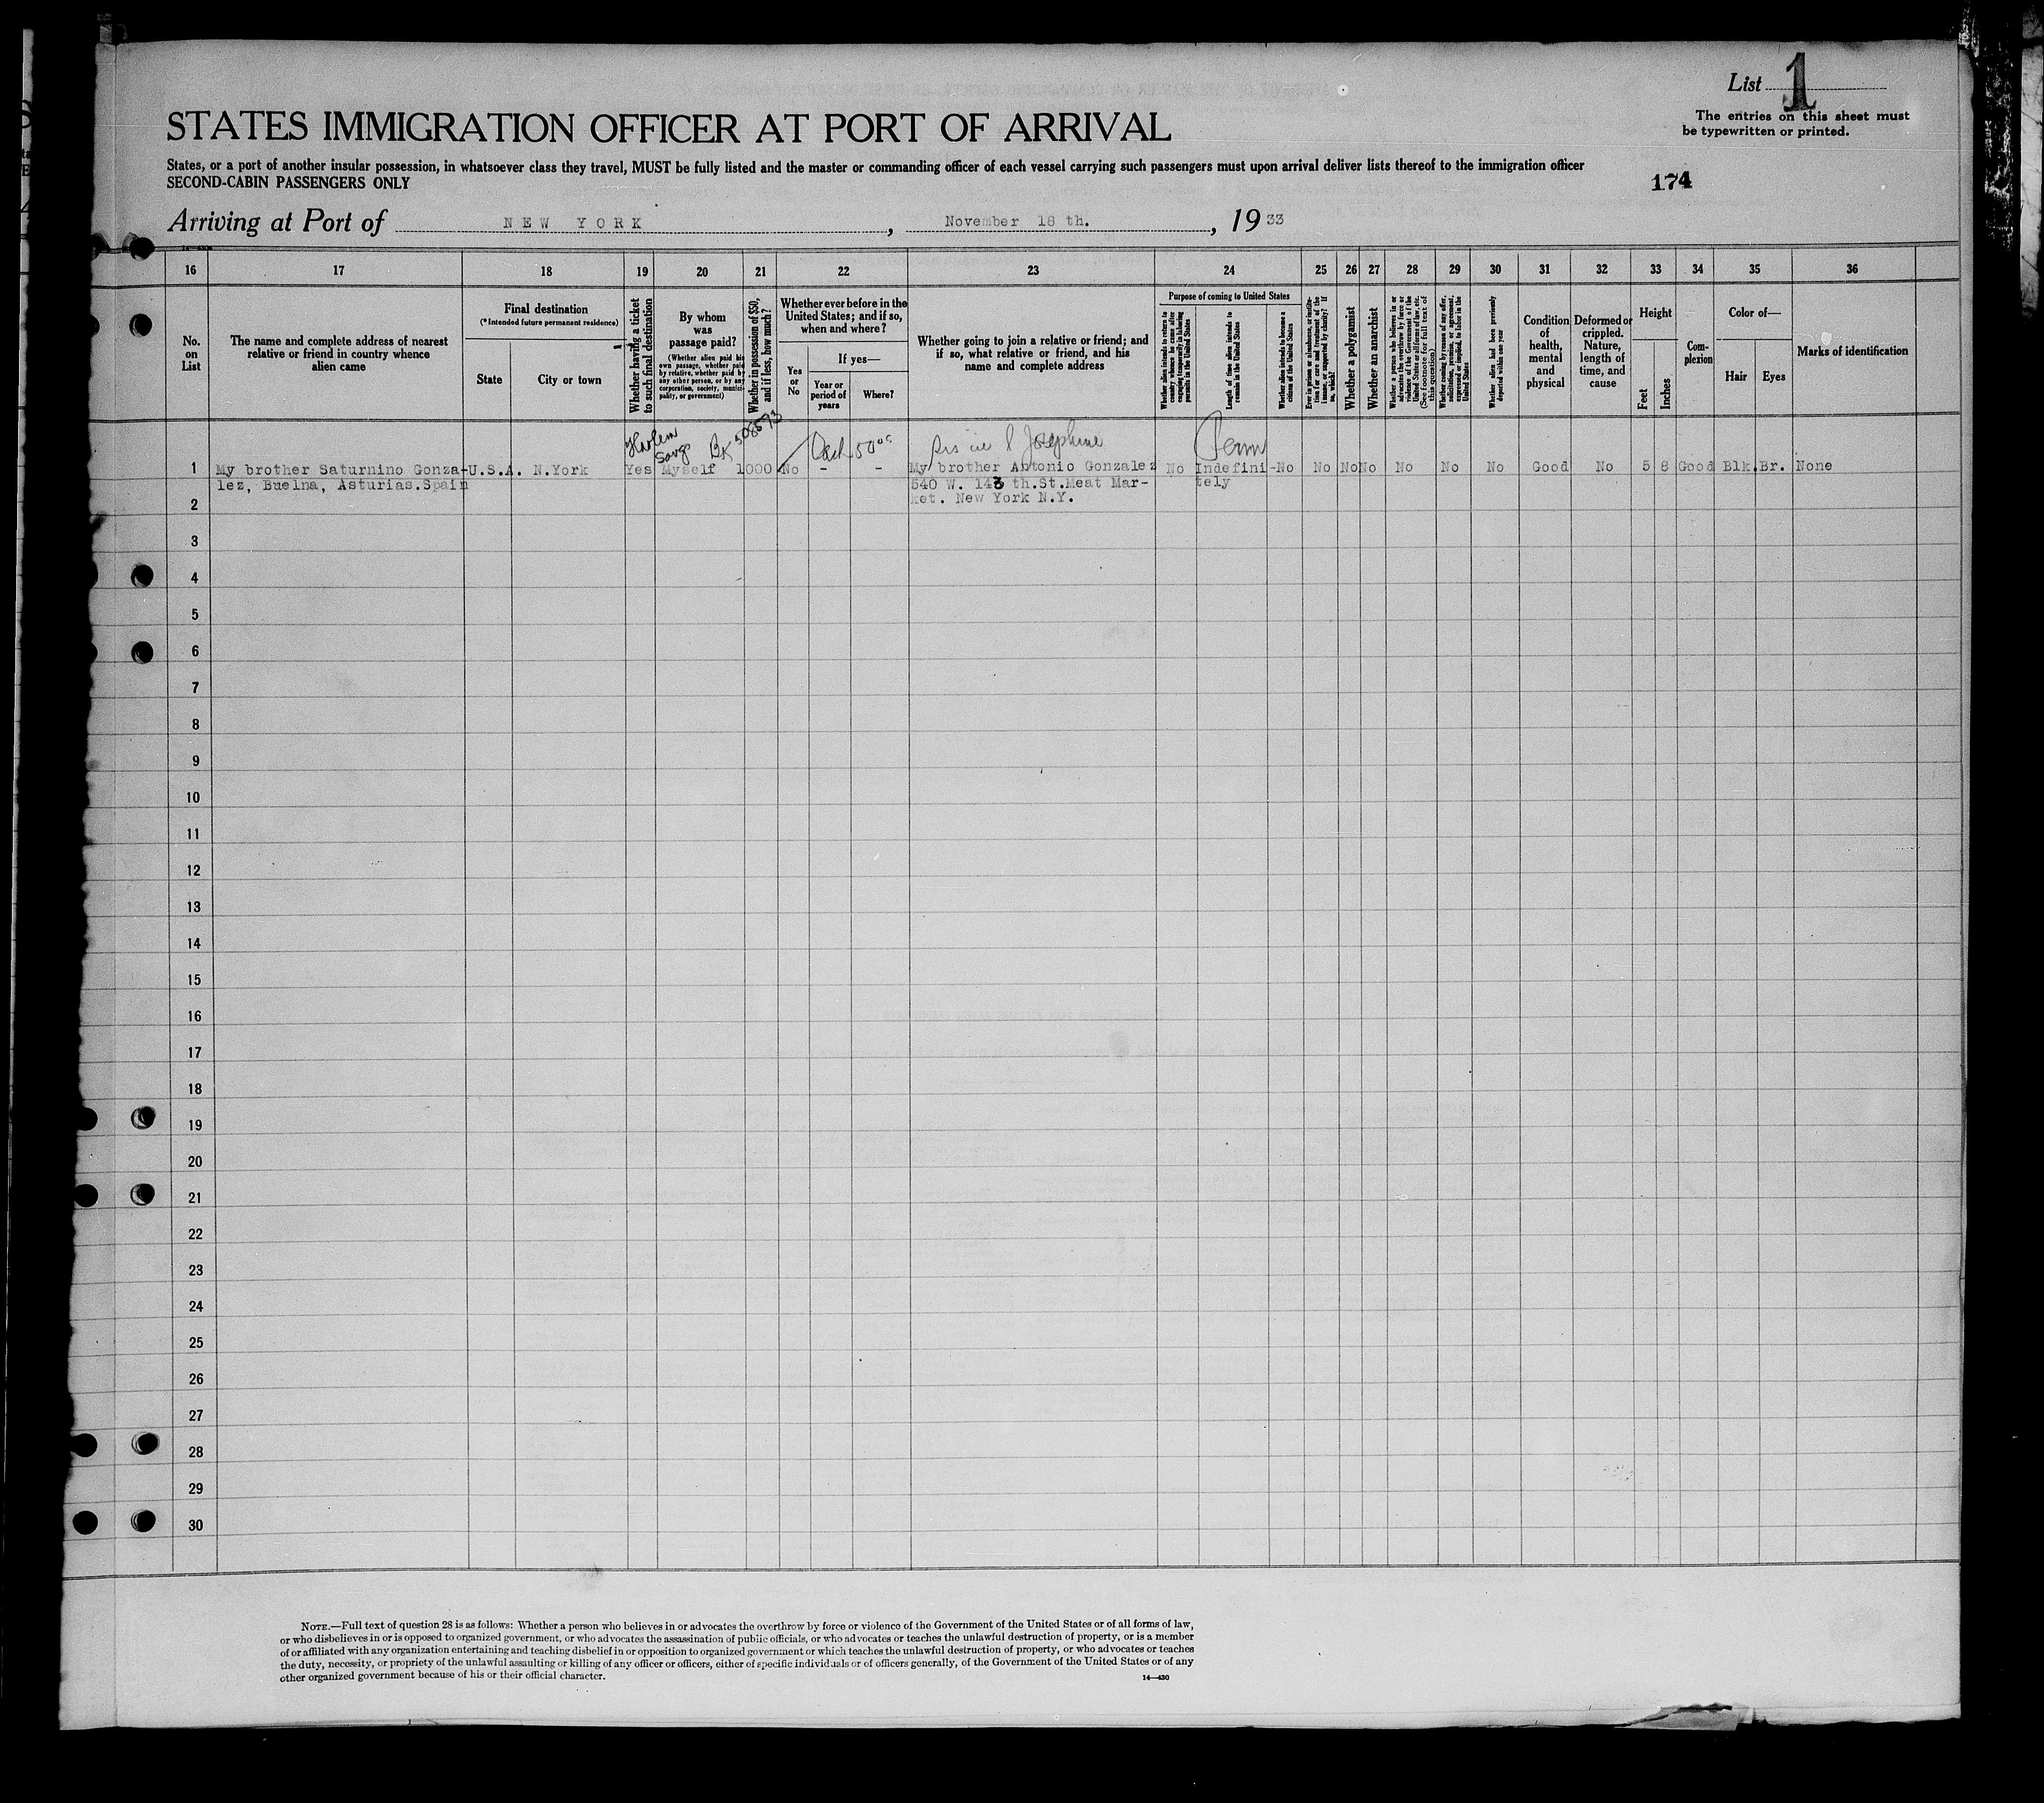 List 1
The entries on this sheet must
be typewritten or printed.
STATES IMMIGRATION OFFICER AT PORT OF ARRIVAL
States, or a port of another insular possession, in whatsoever class they travel, MUST be fully listed and the master or commanding officer of each vessel carrying such passengers must upon arrival deliver lists thereof to the immigration officer
SECOND-CABIN PASSENGERS ONLY
174
Arriving at Port of NEW YORK, November 18 th., 1933
16 17 18 19 20 21 22 23 24 25 26 27 28 29 30 31 32 33 34 35 36
No.
on
List
The name and complete address of nearest
relative or friend in country whence
alien came
Final destination
(*Intended future permanent residence)
State
City or town
Whether having a ticket
to such final destination
By whom
was
passage paid?
(Whether alien paid his
own passage, whether paid
by relative, whether paid by
any other person, or by any
corporation, society, munici-
pality, or government)
Whether in possession of $50,
and if less, how much?
Whether ever before in the
United States; and if so,
when and where?
Yes
or
No
If yes—
Year or
period of
years
Where?
Whether going to join a relative or friend; and
if so, what relative or friend, and his
name and complete address
Purpose of coming to United States
Whether alien intends to return to
country whence he came after
engaging temporarily in laboring
pursuits in the United States
Length of time alien intends to
remain in the United States
Whether alien intends to become a
citizen of the United States
Ever in prison or almshouse, or institu-
tion for care and treatment of the
insane, or supported by charity? If
so, which?
Whether a polygamist
Whether an anarchist
Whether a person who believes in or
advocates the overthrow by force or
violence of the Government of the
United States or all forms of law, etc.
(See footnote for full text of
this question)
Whether coming by reason of any offer,
solicitation, promise, or agreement,
expressed or implied, to labor in the
United States
Whether alien had been previously
deported within one year
Condition
of
health,
mental
and
physical
Deformed or
crippled.
Nature,
length of
time, and
cause
Height
Feet
Inches
Com-
plexion
Color of—
Hair
Eyes
Marks of identification
Harlem
Savgs Bk 508593
Cash 50.00
Sis in l Josephine
Perm
1 My brother Saturnino Gonza- U.S.A. N.York Yes Myself 1000 No - - My brother Antonio Gonzalez No Indefini- No No No No No No No Good No 5 8 Good Blk. Br. None
lez, Buelna, Asturias.Spain 540 W. 143 th.St.Meat Mar- tely
ket. New York N.Y.
2
3
4
5
6
7
8
9
10
11
12
13
14
15
16
17
18
19
20
21
22
23
24
25
26
27
28
29
30
NOTE.—Full text of question 28 is as follows: Whether a person who believes in or advocates the overthrow by force or violence of the Government of the United States or of all forms of law,
or who disbelieves in or is opposed to organized government, or who advocates the assassination of public officials, or who advocates or teaches the unlawful destruction of property, or is a member
of or affiliated with any organization entertaining and teaching disbelief in or opposition to organized government or which teaches the unlawful destruction of property, or who advocates or teaches
the duty, necessity, or propriety of the unlawful assaulting or killing of any officer or officers, either of specific individuals or of officers generally, of the Government of the United States or of any
other organized government because of his or their official character.
14—430